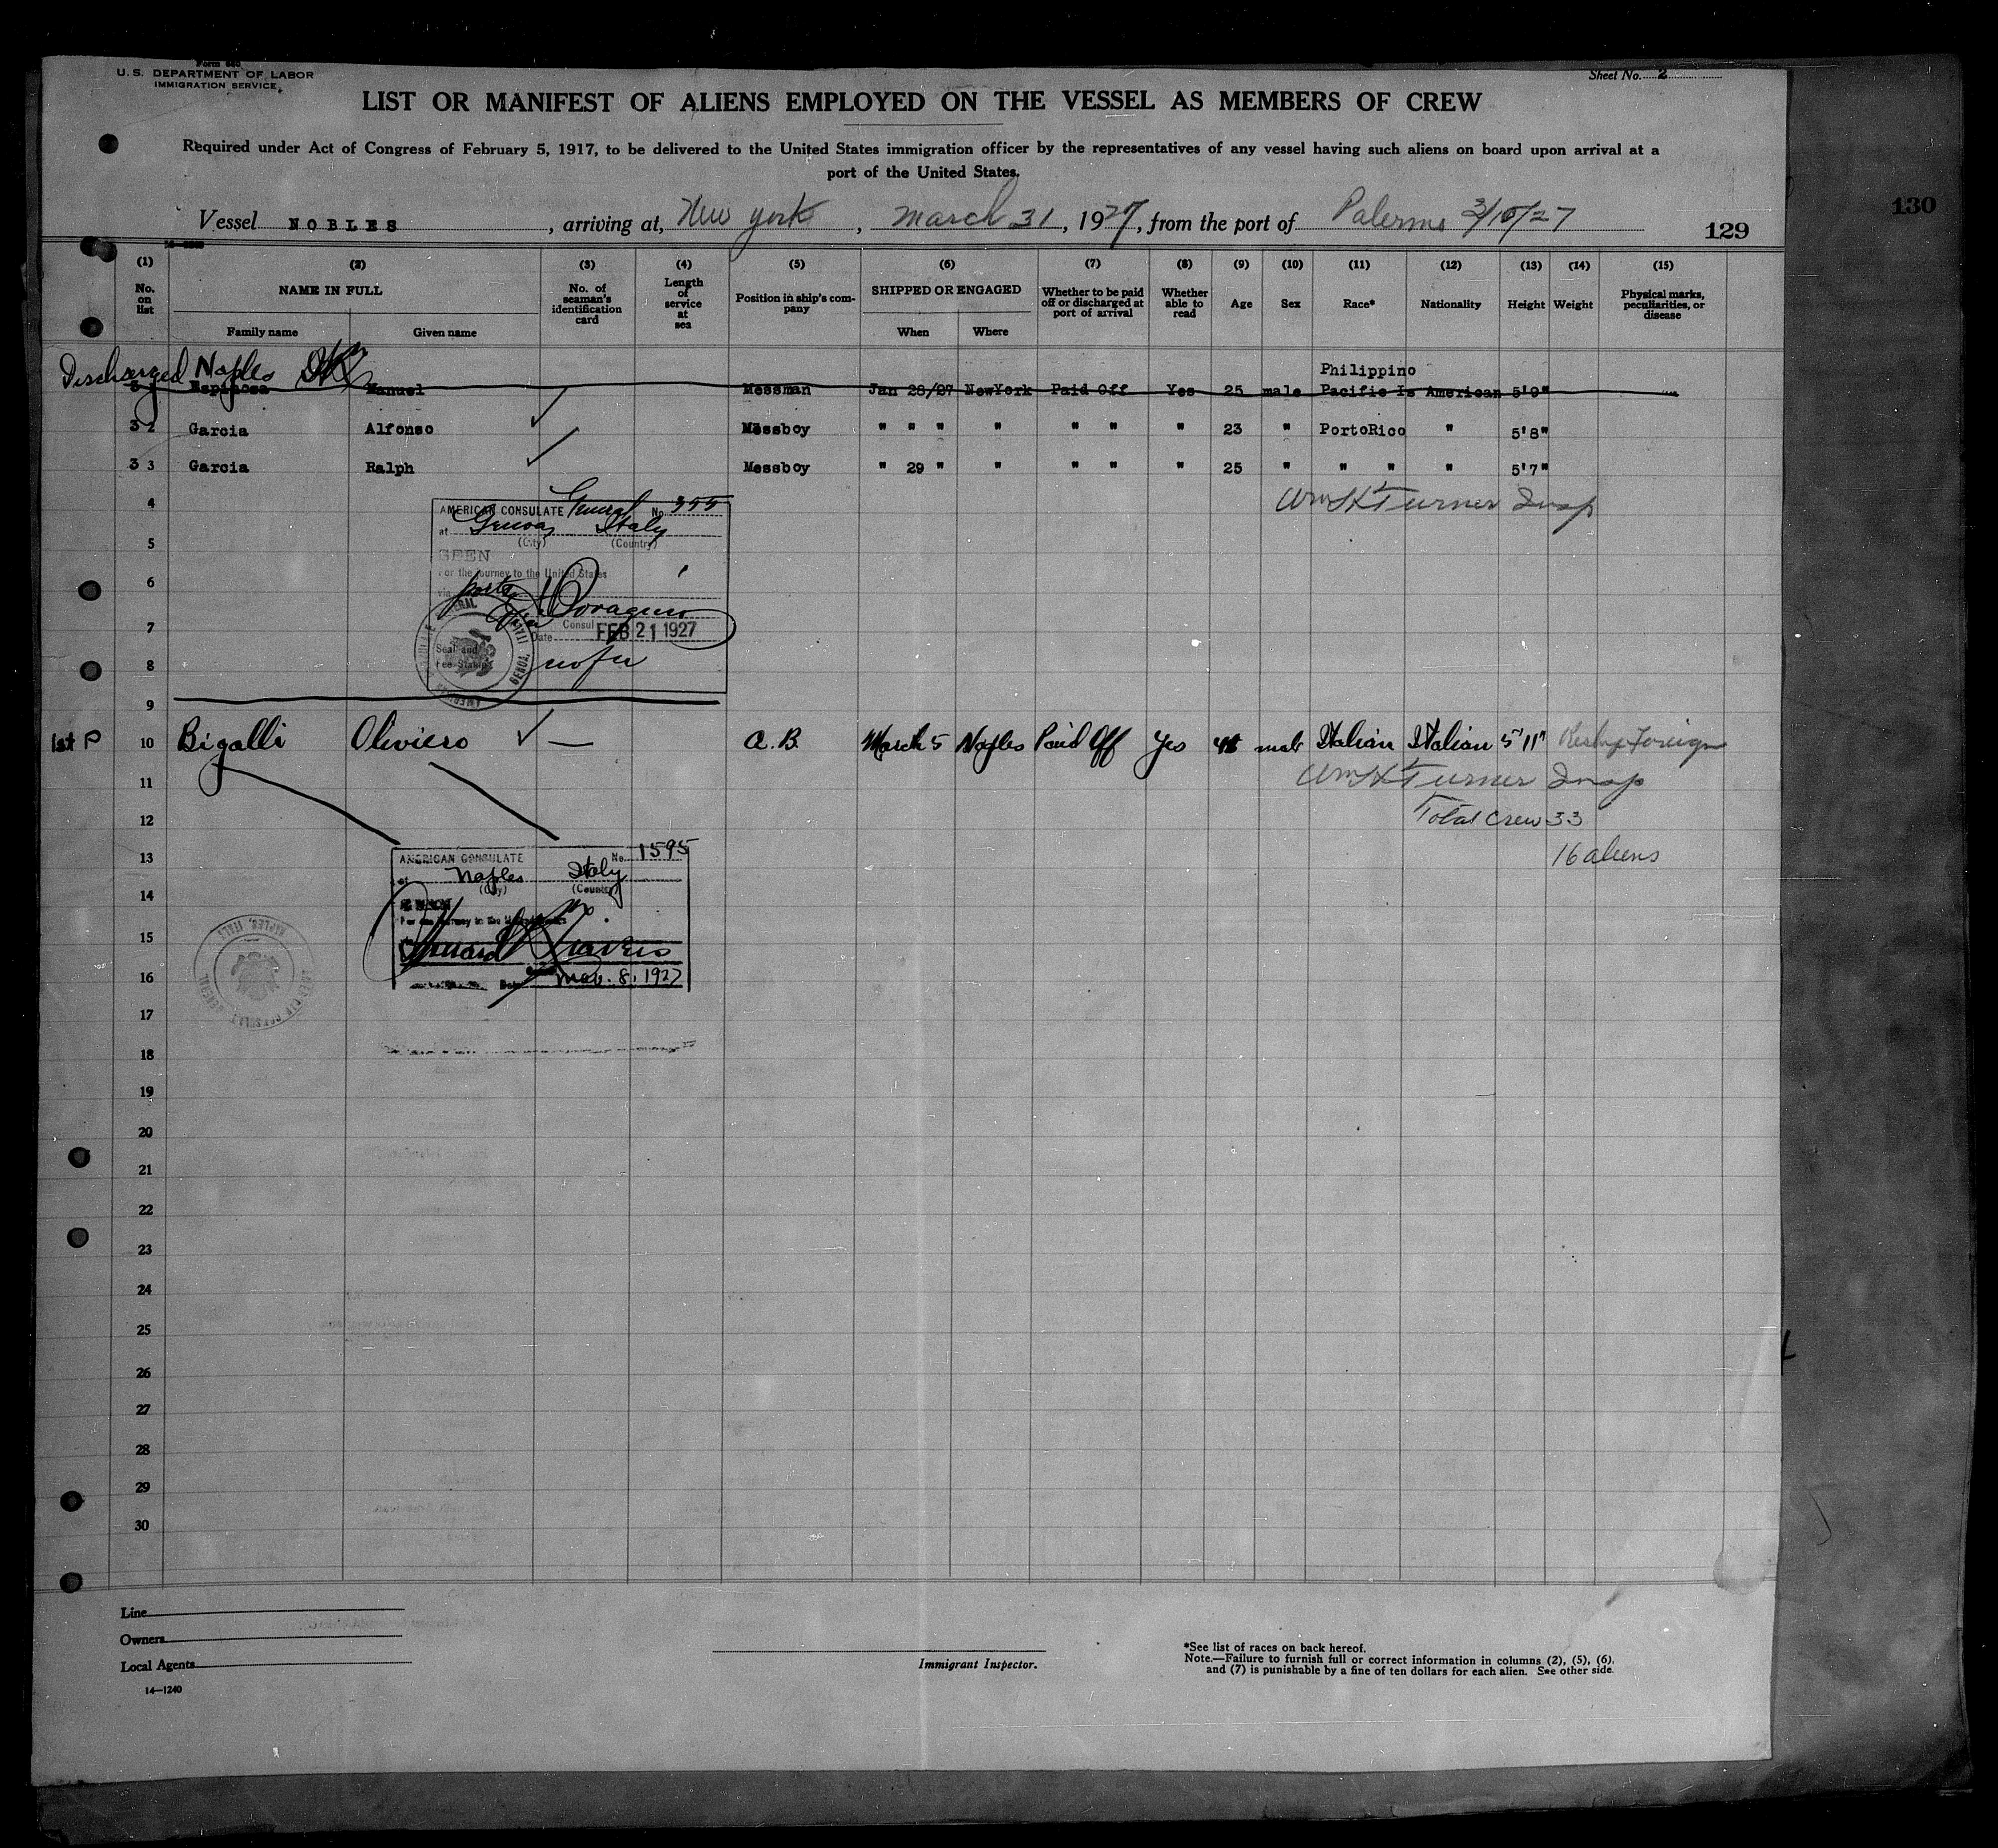 Form 680
U. S. DEPARTMENT OF LABOR
IMMIGRATION SERVICE
Sheet No. 2
LIST OR MANIFEST OF ALIENS EMPLOYED ON THE VESSEL AS MEMBERS OF CREW
Required under Act of Congress of February 5, 1917, to be delivered to the United States immigration officer by the representatives of any vessel having such aliens on board upon arrival at a
port of the United States.
Vessel NOBLES, arriving at, New York, March 31, 1927, from the port of Palermo 3/10/27
129
130
(1) (2) (3) (4) (5) (6) (7) (8) (9) (10) (11) (12) (13) (14) (15)
No. on list NAME IN FULL Family name Given name No. of seaman's identification card Length of service at sea Position in ship's company SHIPPED OR ENGAGED When Where Whether to be paid off or discharged at port of arrival Whether able to read Age Sex Race* Nationality Height Weight Physical marks, peculiarities, or disease
Discharged Naples
Philippino
3 1 Espinosa Manuel Messman Jan 28/27 NewYork Paid Off Yes 25 male Pacific Is American 5'9"
3 2 Garcia Alfonso Messboy " " " " " " " 23 " PortoRico " 5'8"
3 3 Garcia Ralph Messboy " 29 " " " " " 25 " " " " 5'7"
4 Wm H Turner Insp
AMERICAN CONSULATE General No. 355
at Genoa Italy
(City) (Country)
5
SEEN
For the journey to the United States
6
via
7
Consul
Date FEB 21 1927
Seal and
Fee Stamp
no fee
8
9
1st P 10 Bigalli Oliviero — A.B. March 5 Naples Paid Off Yes male Italian Italian 5'11" Reship Foreign
11 Wm H Turner Insp
12 Total Crew 33
13 16 aliens
AMERICAN CONSULATE No. 1595
at Naples Italy
(City) (Country)
14
For the journey to the United States
15
16
Mar. 8, 1927
17
18
19
20
21
22
23
24
25
26
27
28
29
30
Line
Owners
Local Agents
14—1240
Immigrant Inspector.
*See list of races on back hereof.
Note.—Failure to furnish full or correct information in columns (2), (5), (6),
and (7) is punishable by a fine of ten dollars for each alien. See other side.